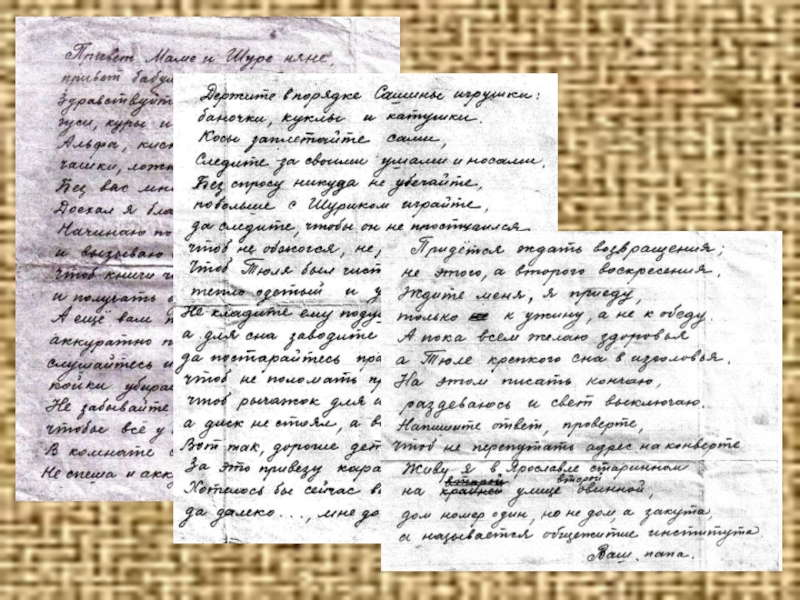 Привет Маме и Шуре няне
привет бабу
Здравствуйт
гуси, куры и
Альфа, кис
чашки, ложк
Без вас мн
Доехал я бла
Начинаю по
и вызываю
Чтоб книги ч
и получать
А ещё вам п
аккуратно п
слушайтесь и
койки убира
Не забывайте
чтобы всё у
В комнате
Не спеша и акк
Держите в порядке Сашины игрушки:
баночки, куклы и катушки.
Косы заплетайте сами,
Следите за своими умами и носами.
Без спросу никуда не убегайте,
побольше с Шуриком играйте,
да следите, чтобы он не простудился
чтоб не обжогся, не
Чтоб Тюля был чист
тепло одетый и у
Не кладите ему поду
а для сна заводите
да постарайтесь пра
чтоб не поломать п
чтоб рычажок для
а диск не стоял, а в
Вот так, дорогие дет
За это привезу кара
Хотелось бы сейчас в
да далеко..., мне до
Придётся ждать возвращения;
не этого, а второго воскресения.
Ждите меня, я приеду,
только к ужину, а не к обеду.
А пока всем желаю здоровья
а Тюле крепкого сна в изголовья.
На этом писать кончаю,
раздеваюсь и свет выключаю.
Напишите ответ, проверте,
чтоб не перепутать адрес на конверте
Живу я в Ярославле старинном
второй второй
на крайней улице овинной,
дом номер один, но не дом, а закута,
а называется общежитие института
Ваш папа.